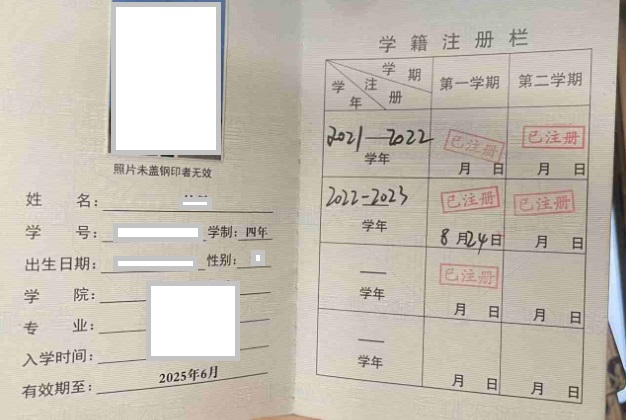 照片未盖钢印者无效
姓 名：
学 号： 学制：四年
出生日期： 性别：
学 院：
专 业：
入学时间：
有效期至： 2025年6月
学籍注册栏
学期 注册 学年 第一学期 第二学期
2021—2022 学年 已注册 月 日 已注册 月 日
2022-2023 学年 已注册 8月24日 已注册 月 日
— 学年 已注册 月 日 月 日
— 学年 月 日 月 日